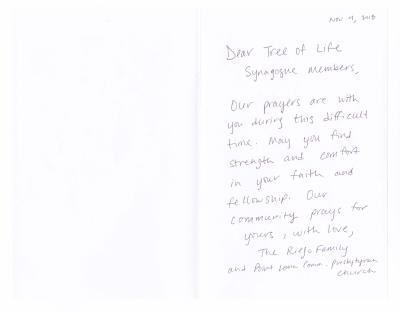 Nov 4, 2018
Dear Tree of Life
Synagogue members,
Our prayers are with
you during this difficult
time. May you find
strength and comfort
in your faith and
fellowship. Our
community prays for
yours, with love,
The Family
and Point Loma Comm. Presbyterian
church